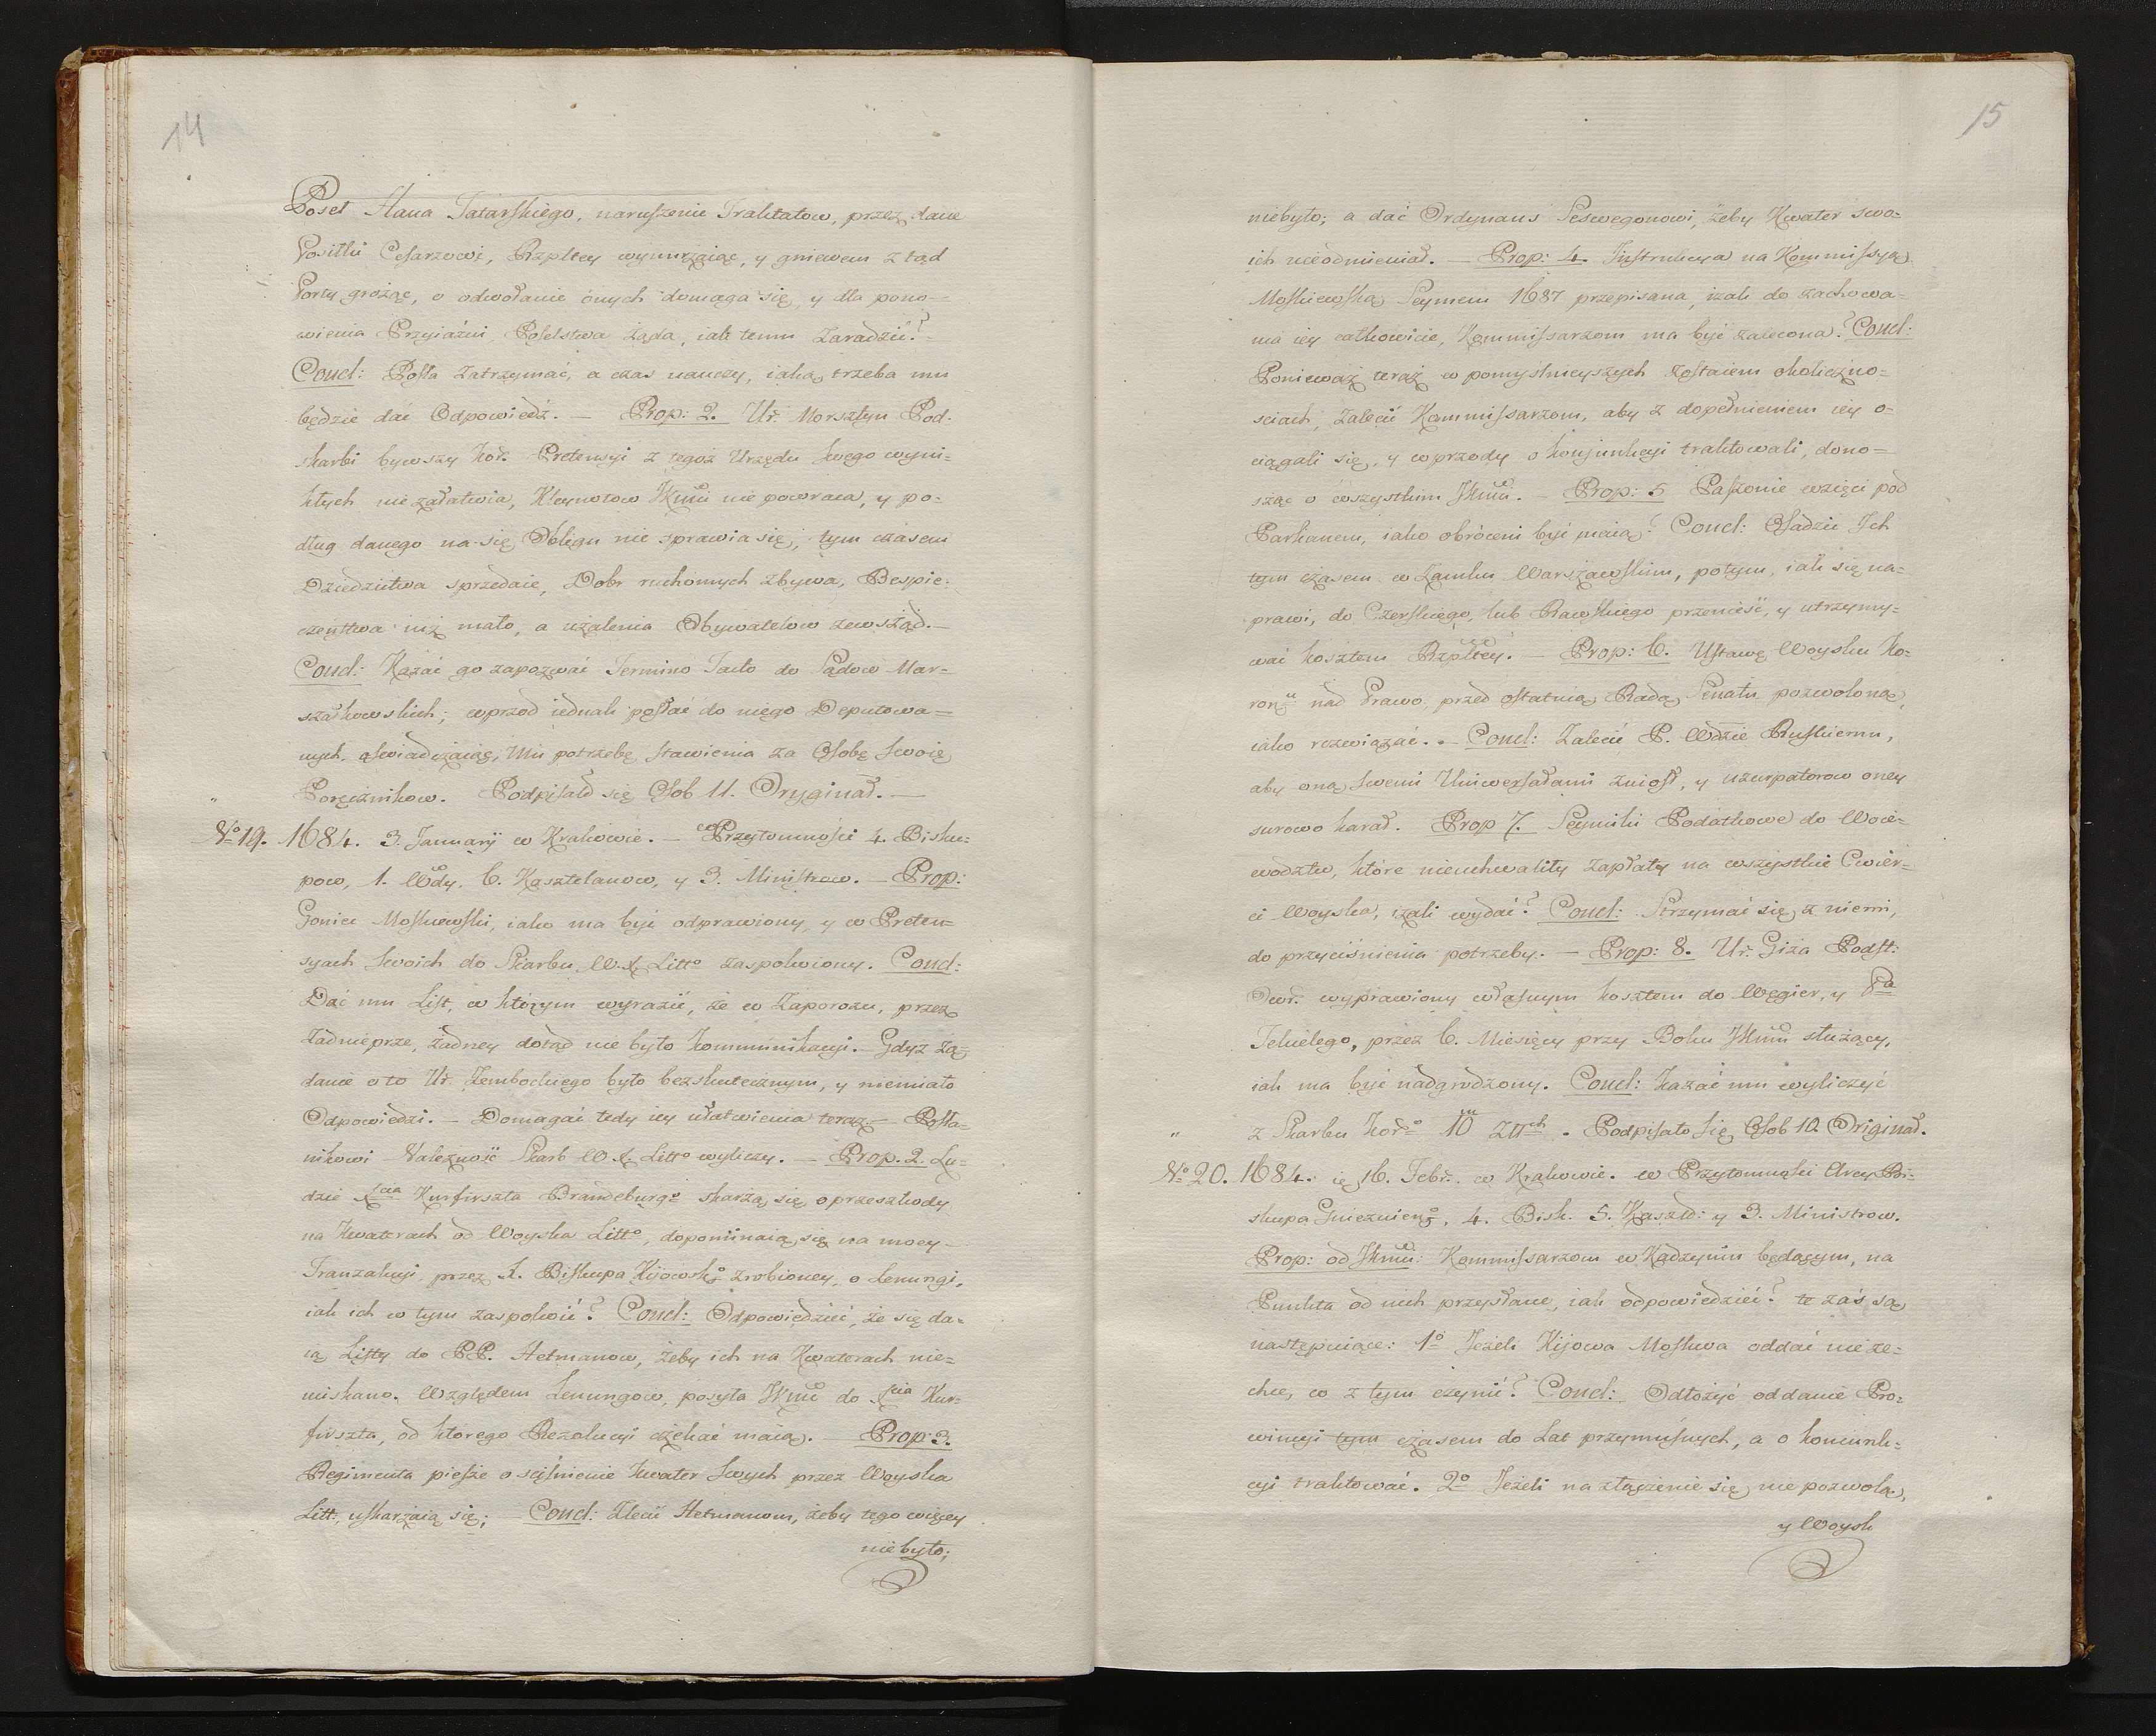 14
Poseł Hana Tatarskiego, naruszenie Traktatow, przez dane
Posiłki Cesarzowi, Rzpltey wymuiąc, y gniewem z tąd
Porty grożąc, o odwołanie onych domaga się, y dla pono=
wienia Przyiaźni, Poselstwa żąda, iak temu Zaradzić?=
Concl: Posła Zatrzymać, a czas nauczy, iaką trzeba mu
będzie dać Odpowiedź. — Prop: 2. Ur. Morsztyn Pod.
skarbi bywszy Kor. Pretensyi z tegoż Urzędu swego wyni=
kłych nie załatwia, Kleynotow JKmci nie powraca, y po=
dług danego na się Obligu nie sprawia się, tym czasem
Dziedzictwa sprzedaie, Dobr ruchomych zbywa, Bespie=
czeństwa iuż mało, a użalenia Obywatelow zewsząd.—
Concl: Kazać go zapozwać Termino Tacto do Sądow Mar=
szałkowskich; wprzod iednak posłać do niego Deputowa=
nych, oświadczaiąc, Mu potrzebę stawienia za Osobę swoię
Poręcznikow. Podpisało się Osob 11. Oryginał.—
No 19. 1684. 3. January w Krakowie. — w Przytomności 4. Bisku=
pow, 1. Wdy, 6. Kasztelanow, y 3. Ministrow. — Prop:
Goniec Moskiewski, iako ma być odprawiony y w Preten=
syach swoich do Skarbu W. X. Litto zaspokoiony. Concl:
Dać mu List, w którym wyrazić, że w Zaporożu, przez
Zadnieprze, żadney dotąd nie było kommunikacyi. Gdyż żą=
danie o to Ur. Zembockiego było bezskutecznym, y niemiało
Odpowiedzi. — Domagać tedy iey ułatwienia teraz — Posła=
nikowi Należność Skarb W X. Litto wyliczy. — Prop. 2. Lu=
dzie Xcia Kurfirszta Brandeburgo skarżą się o przeszkody
na Kwaterach od Woyska Litto, dopominaią się na mocy
Tranzakcyi, przez X. Biskupa Kijowsko zrobioney, o Lenungi,
iak ich w tym zaspokoić? Concl: Odpowiedzieć, że się da=
ią Listy do PP. Hetmanow, żeby ich na Kwaterach nie=
niskano. Względem Lenungow, posyła JKmć do Xcia Kur=
firszta, od którego Rezolucyi czekać maią. — Prop: 3.
Regimenta piesze o ściśnienie Kwater swych przez Woyska
Litt, uskarżaią się; — Concl: Zlecić Hetmanom, żeby tego więcey
niebyło;
15
niebyło; a dać Ordynans Leswegonowi, żeby Kwater swo=
ich nieodmieniał. — Prop: 4. Instrukcya na Kommissyą
Moskiewską Seymem 1687 przepisana, izali do zachowa=
nia iey całkowicie, Kommissarzom ma być zalecona? Concl:
Ponieważ teraz w pomyślnieyszych zostaiem okoliczno=
sciach, zalecić Kommissarzom, aby z dopełnieniem iey o=
ciągali się, y wprzody o konjunkcyi traktowali, dono=
sząc o wszystkim JKmci. — Prop: 5 Paszonie wzięci pod
Parkanem, iako obróceni być maią? Concl: Osadzić Ich
tym czasem w Zamku Warszawskim, potym, iak się na=
prawi, do Czerskiego, lub Rawskiego przenieść, y utrzymy=
wać kosztem Rzpltey. — Prop: 6. Ustawę Woysku Ko=
ronu nad Prawo, przed ostatnią Radą Senatu pozwoloną,
iako rozwiązać. — Concl: Zalecić P. Wdzie Ruskiemu,
aby oną swemi Uniwersałami zniosł, y uzurpatorow oney
surowo karał. Prop 7. Seymiki Podatkowe do Woie=
wodztw, które nieuchwality zapłaty na wszystkie Cwier=
ci Woyska, izali wydać? Concl: Strzymać się z niemi,
do przyciśnienia potrzeby. — Prop: 8. Ur. Giza Podst:
Dwr. wyprawiony własnym kosztem do Węgier, y Pa
Tekielego, przez 6. Miesięcy przy Boku JKmci służący,
iak ma być nadgrodzony. Concl: Kazać mu wyliczyć
z Skarbu Koro 10m Złłch. Podpisało się Osob 10. Originał.
No 20. 1684. 16. Febr. w Krakowie. w Przytomności Arcy Bi=
skupa Gniezniengo, 4. Bisk. 5. Kaszt: y 3. Ministrow.
Prop: od JKmci: Kommissarzom w Kadzynin będącym, na
Punkta od nich przysłane, iak odpowiedzieć? te zaś są
następuiące: 1o Jeżeli Kijowa Moskwa oddać nieze=
chce, co z tym czynić? Concl: Odłożyć oddanie Pro=
wincyi tym czasem do Lat przymuśnych, a o koniunk=
cyi traktować. 2o Jeżeli na złączenie się nie pozwolą,
y Woysk